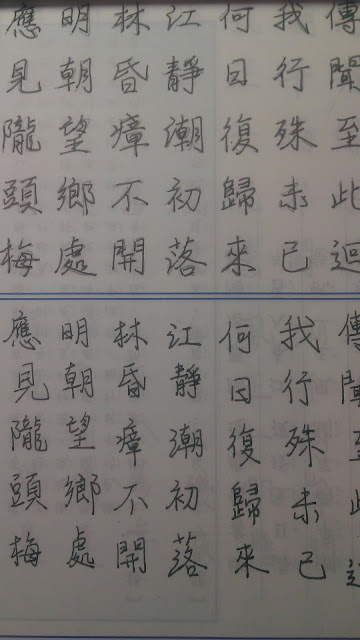 傳聞至此迴
我行殊未已
何日復歸來
江靜潮初落
林昏瘴不開
明朝望鄉處
應見隴頭梅
傳聞至此迴
我行殊未已
何日復歸來
江靜潮初落
林昏瘴不開
明朝望鄉處
應見隴頭梅